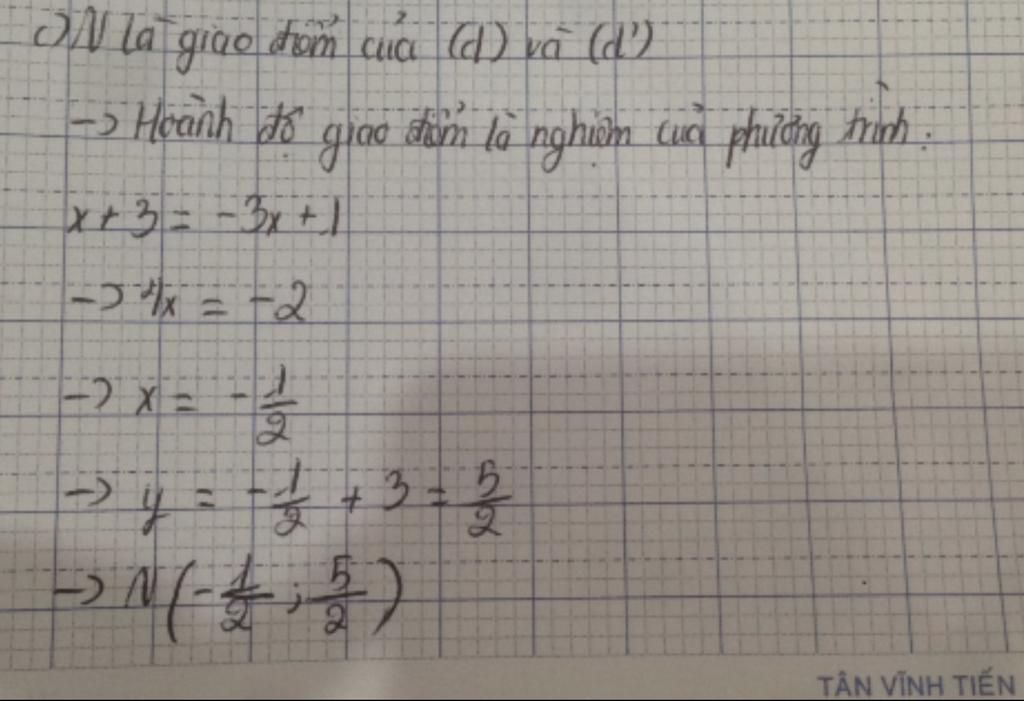 c) N là giao điểm của (d) và (d')
-> Hoành độ giao điểm là nghiệm của phương trình:
x + 3 = -3x + 1
-> 4x = -2
-> x = -1/2
-> y = -1/2 + 3 = 5/2
-> N(-1/2; 5/2)
TÂN VĨNH TIẾN